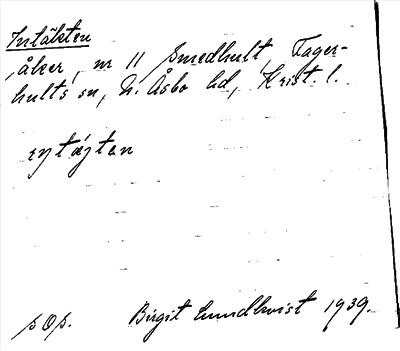 Intäkten
, åker, nr 11 Smedhult, Fager-
hults sn, N. Åsbo hd, Krist. l.
Birgit Lundkvist 1939.